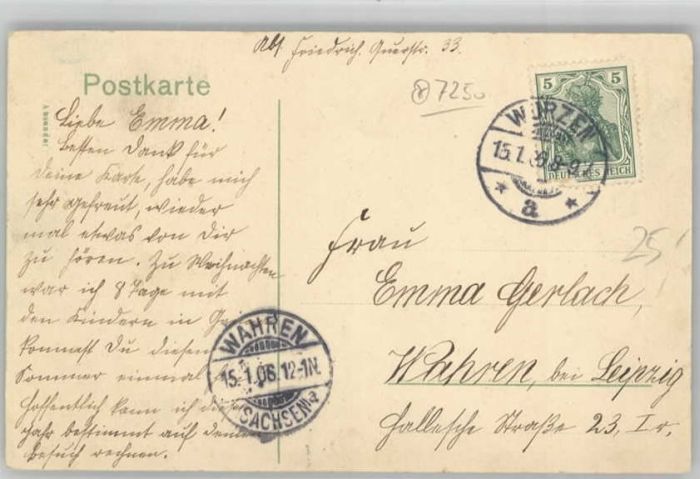 Abs. Friedrich, Querstr. 33.
Postkarte
7250
5 5
DEUTSCHES REICH
WURZEN
15.1.06.8-9V
* a *
Liebe Emma!
besten Dank für
deine Karte, habe mich
sehr gefreut, wieder
mal etwas von Dir
zu hören. Zu Weihnachten
war ich 8 Tage mit
den Kindern in
kommst Du diesen
Sommer einmal
hoffentlich kann ich dies
Jahr bestimmt auf deinen
besuch rechnen.
WAHREN
15.1.06.12-1N.
(SACHSEN)
25
Frau
Emma Gerlach,
Wahren, bei Leipzig
Hallesche Straße 23, I r.